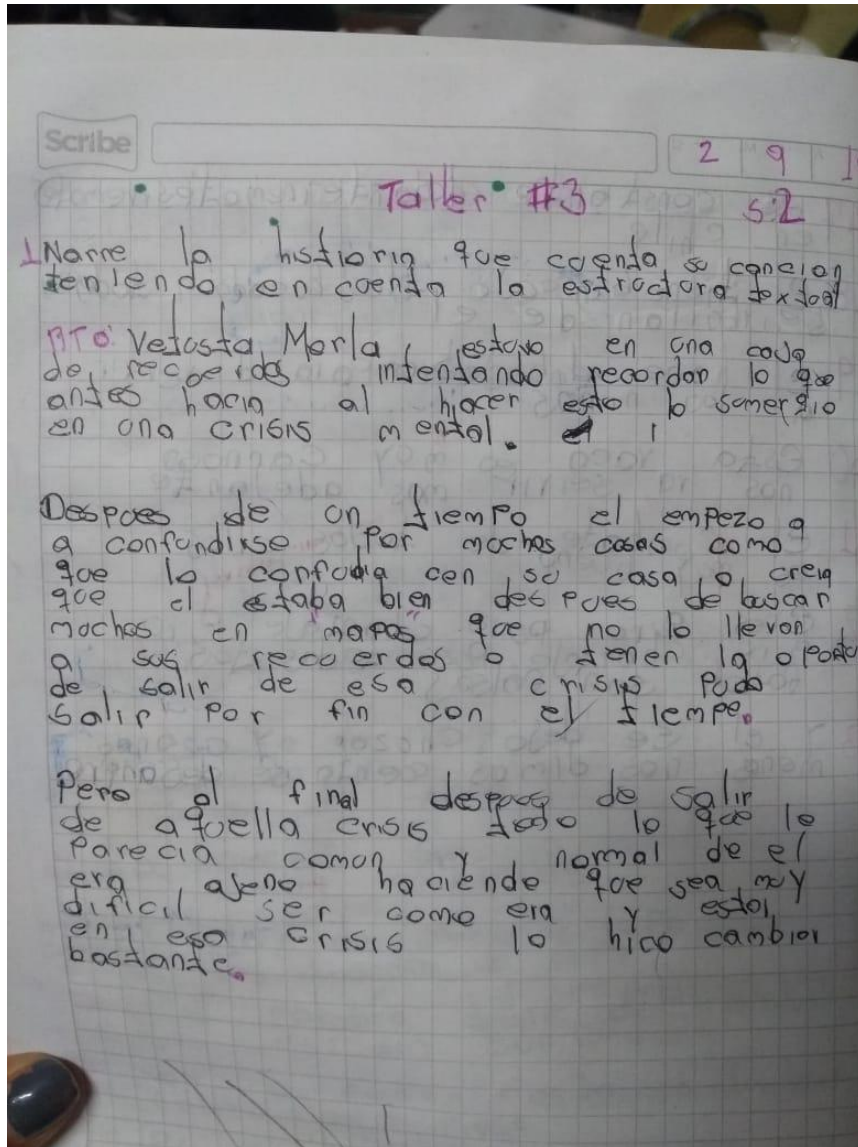 Scribe
2 9 1
Taller #3
S:2
1 Narre la histiorin que cuenta su cancion
teniendo en cuenta la estructura textual
RTO: Vetusta Morla, estuvo en una
de recuerdos intentando recordar lo que
antes hacia al hacer esto lo sumergio
en una crisis mental.
Despues de un tiempo el empezo a
a confundirse por muchas cosas como
que lo confudia cen su casa o creia
que el estaba bien despues de buscar
muchos en "mapas" que no lo llevon
a sus recuerdos o tenen la oportu
de salir de esa crisis pudo
salir por fin con el tiempo.
Pero al final despues de salir
de aquella crisis todo lo que le
parecia comun y normal de el
era ajeno haciendo que sea muy
dificil ser como era y estoi
en esa crisis lo hico cambior
bastante.